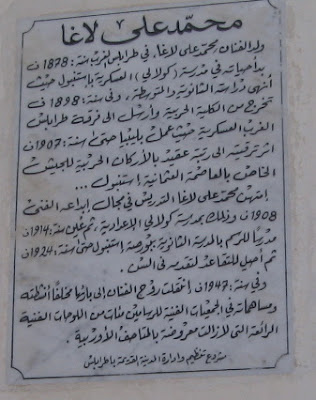 محمّد علي لاغا
ولد الفنان محمد علي لاغا. في طرابلس الغرب سنة: 1878 ف
بدأ حياته في مدرسة (كولالي) العسكرية بإستنبول حيث
أنهى دراسته الثانوية والمتوسطة، وفي سنة: 1898 ف
تخرج من الكلية الحربية وارسل الى فرقة طرابلس
الغرب العسكرية حيث عمل بليبيا حتى سنة: 1907 ف
اثر ترقيته الى رتبة عقيد بالأركان الحربية للجيش
الخاص بالعاصمة العثمانية إستنبول ...
إمتهن محمد علي لاغا التدريس في مجال إبداعه الفني
1908 ف وذلك بمدرسة كولالي الإعدادية، ثم عين سنة: 1914 ف
مدرسًا للرسم بالمدرسة الثانوية ببورصة إستنبول حتى سنة: 1924 ف
ثم أحيل للتقاعد لتقدمه في السن.
وفي سنة: 1947 ف إنتقلت روح الفنان إلى بارئها مخلفًا أنشطته
ومساهماته في الجمعيات الفنية للرسامين مئات من اللوحات الفنية
الرائعة التي لازالت معروضة بالمتاحف الأوربية.
مشروع تنظيم وإدارة المدينة القديمة بإطرابلس